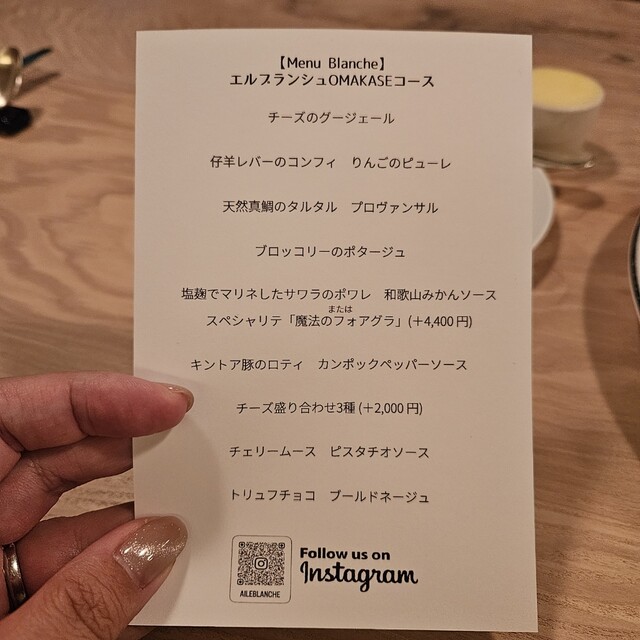 【Menu Blanche】
エルブランシュOMAKASEコース
チーズのグージェール
仔羊レバーのコンフィ　りんごのピューレ
天然真鯛のタルタル　プロヴァンサル
ブロッコリーのポタージュ
塩麹でマリネしたサワラのポワレ　和歌山みかんソース
または
スペシャリテ「魔法のフォアグラ」(＋4,400 円)
キントア豚のロティ　カンポックペッパーソース
チーズ盛り合わせ3種 (＋2,000 円)
チェリームース　ピスタチオソース
トリュフチョコ　ブールドネージュ
Follow us on
Instagram
AILEBLANCHE